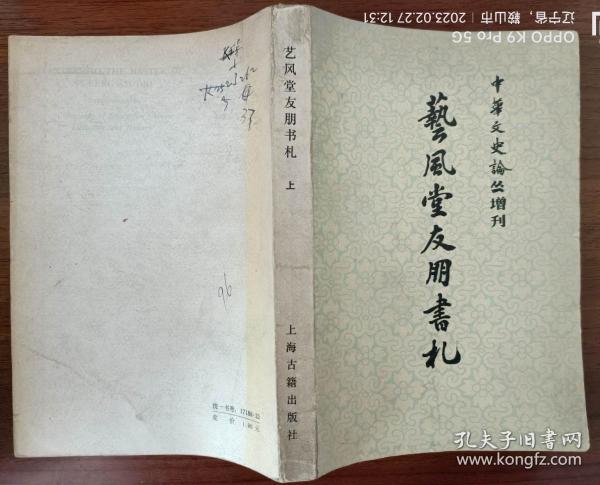 中華文史論丛增刊
藝風堂友朋書札
艺风堂友朋书札
上
上海古籍出版社
96
统一书号：17186·33
定价：1.90元
OPPO K9 Pro 5G
辽宁省，鞍山市 | 2023.02.27 12:31
孔夫子旧书网
www.kongfz.com